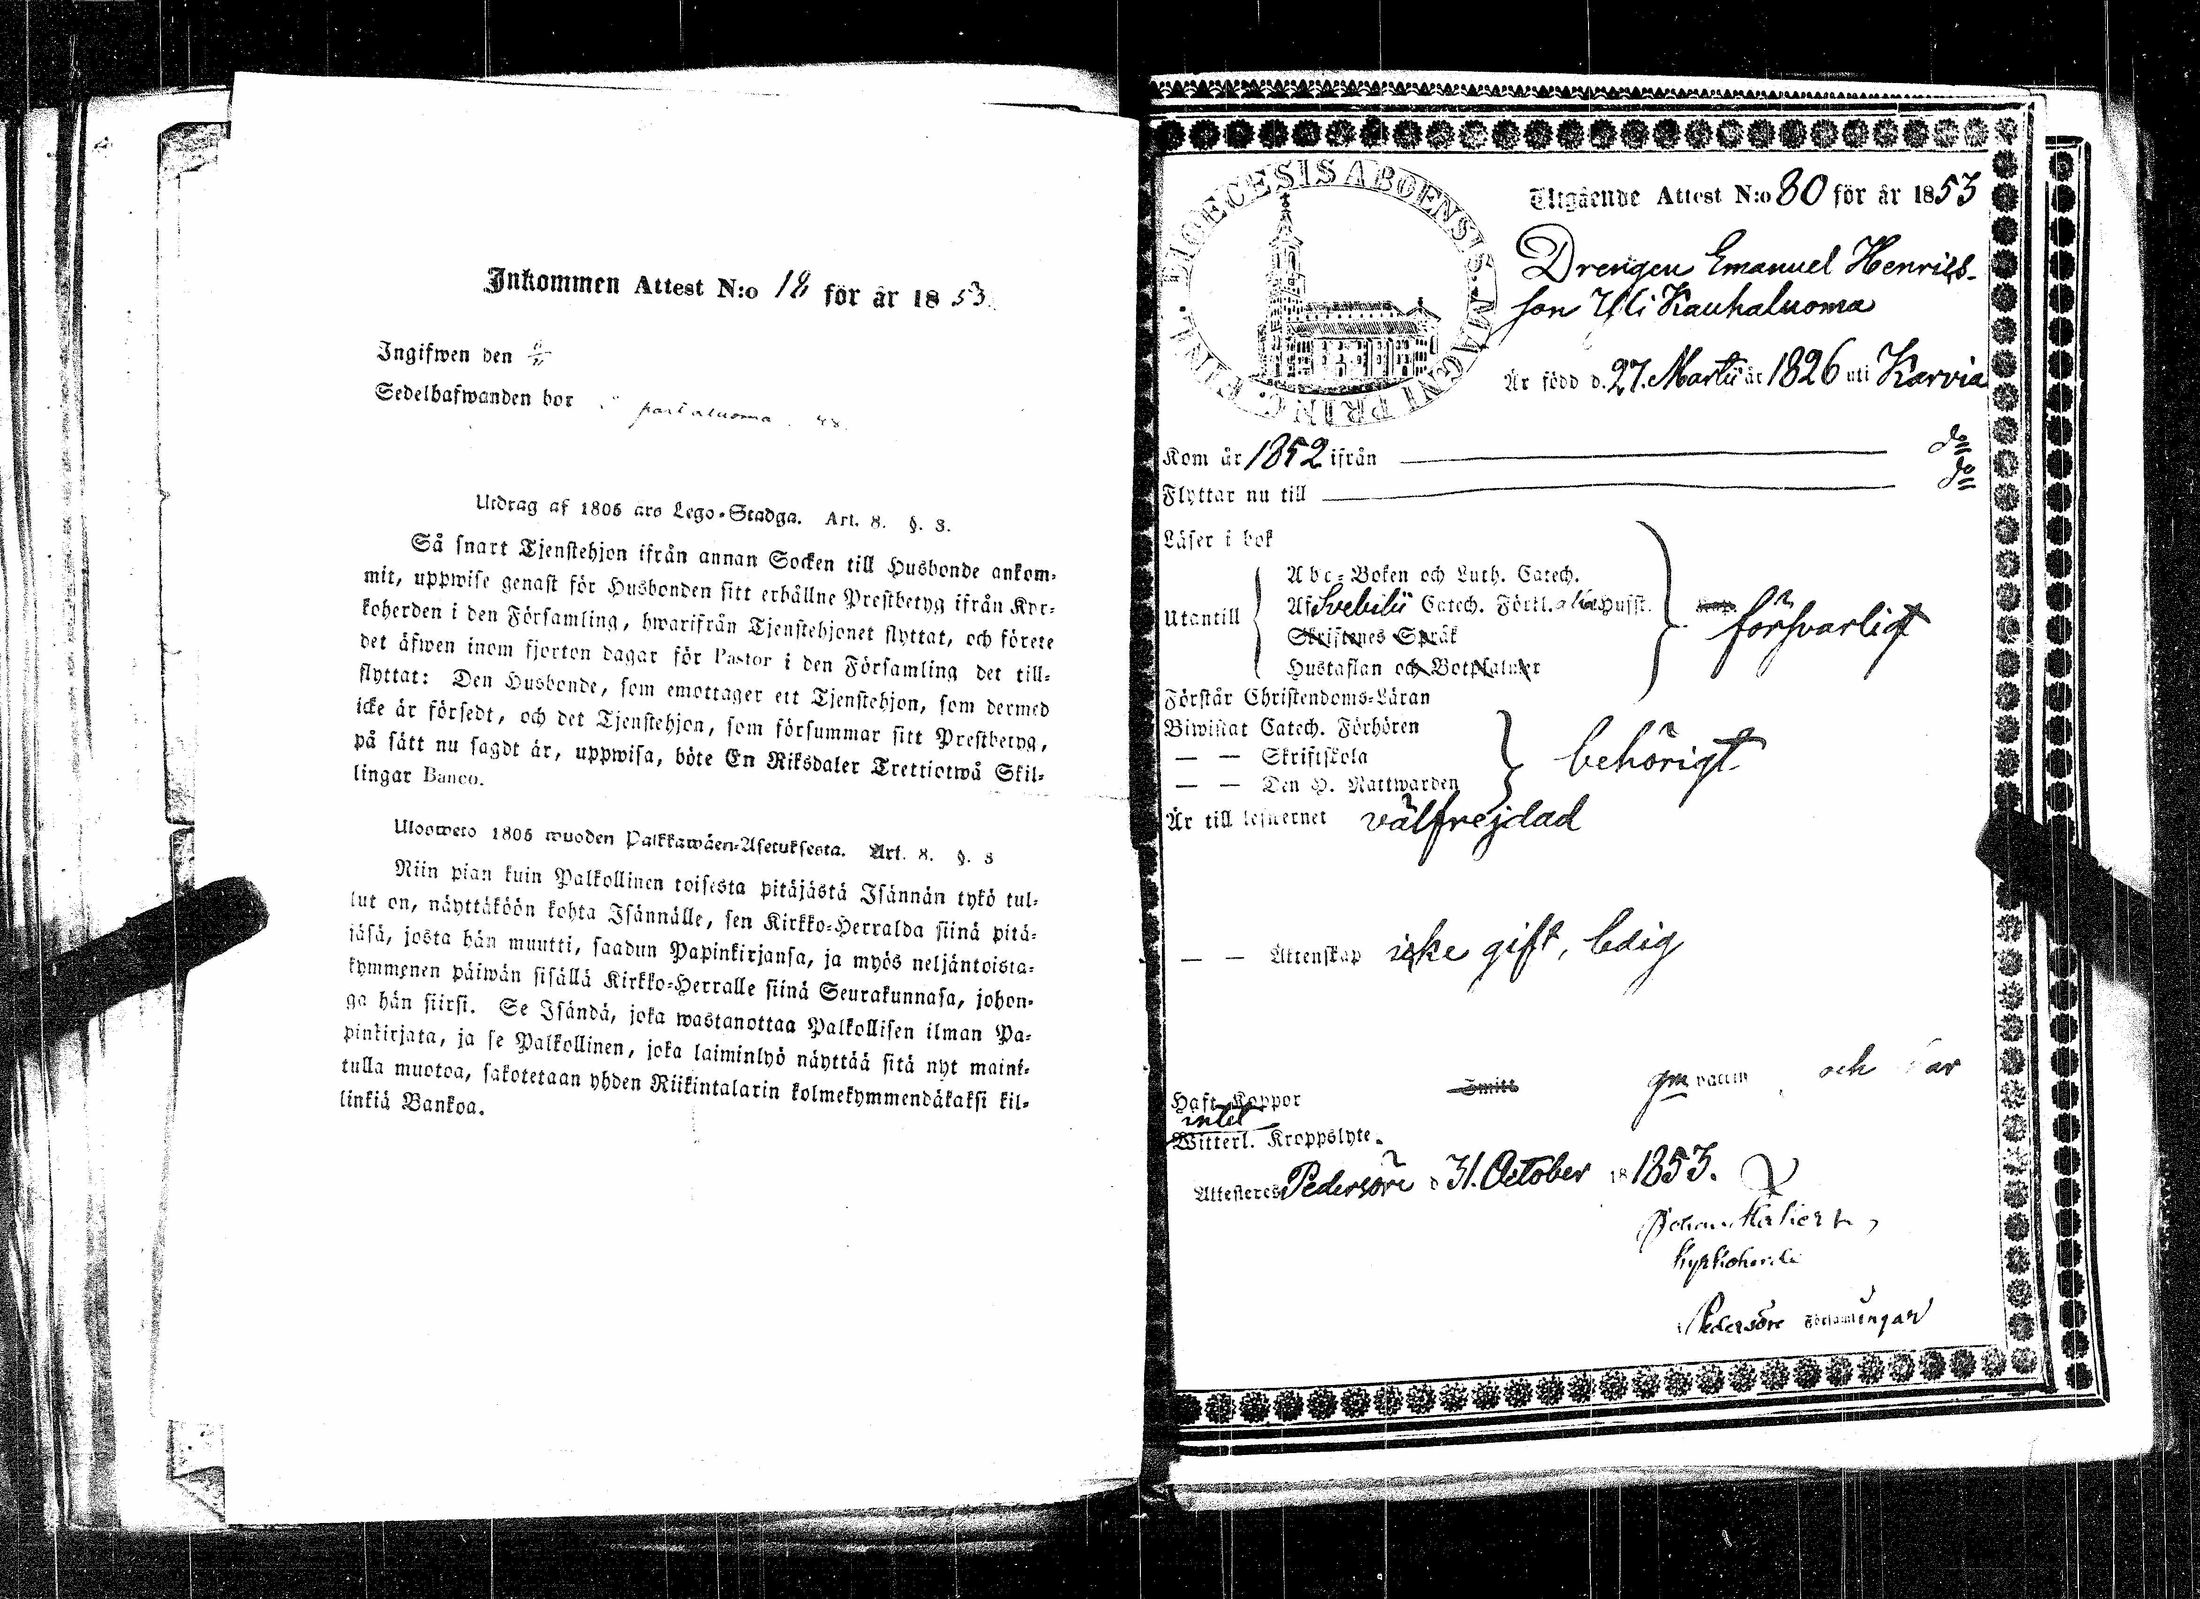 Inkommen Attest N:o 18 för år 1853.
Ingifwen den
Sedelhafwanden bor
Utdrag af 1805 års Lego-Stadga. Art. 8. §. 8.
Så snart Tjenstehjon ifrån annan Socken till Husbonde ankom-
mit, uppwise genast för Husbonden sitt erhållne Prestbetyg ifrån Kyr-
koherden i den Församling, hwarifrån Tjenstehjonet flyttat, och förete
det äfwen inom fjorton dagar för Pastor i den Församling det till-
flyttat: Den Husbonde, som emottager ett Tjenstehjon, som dermed
icke är försedt, och det Tjenstehjon, som försummar sitt Prestbetyg,
på sätt nu sagdt är, uppwisa, böte En Riksdaler Trettiotwå Skil-
lingar Banco.
Ulosweto 1805 wuoden Palkkawäen-Asetuksesta. Art. 8. §. 8
Niin pian kuin Palkollinen toisesta pitäjästä Isännän tykö tul-
lut on, näyttäköön kohta Isännälle, sen Kirkko-Herralda siinä pitä-
jäsä, josta hän muutti, saadun Papinkirjansa, ja myös neljäntoista-
kymmenen päiwän sisällä Kirkko-Herralle siinä Seurakunnasa, johon-
ga hän siirsi. Se Isändä, joka wastanottaa Palkollisen ilman Pa-
pinkirjata, ja se Palkollinen, joka laiminlyö näyttää sitä nyt maini-
tulla muotoa, sakotetaan yhden Riikintalarin kolmekymmendäkaksi kil-
linkiä Bankoa.
DIOECESIS ABOENSIS. MAGNI PRINC. FINL.
Utgående Attest N:o 80 för år 1853
Drengen Emanuel Henriks-
son Yli Kauhaluoma
Är född d. 27. Martii år 1826 uti Karvia
Kom år 1852 ifrån do
Flyttar nu till do
Läser i bok
Utantill
Abc-Boken och Luth. Catech.
Af Svebilii Catech. Förkl. Husst.
Skriftenes Språk
Hustaflan och Botpsalmer
försvarligt
Förstår Christendoms-Läran
Biwistat Catech. Förhören
— — Skriftskola
— — Den H. Nattwarden
behörigt
Är till lefwernet välfrejdad
— — Äktenskap icke gift, ledig
Haft Koppor och har
intet
Witterl. Kroppslyte.
Attesteres Pedersöre d 31. October 18 1853.
Kyrkoherde
Pedersöre Församlingar